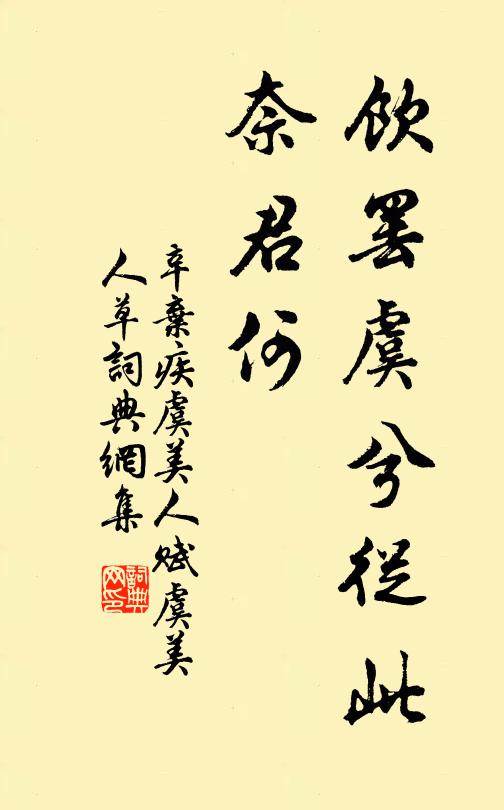 飲罷虞兮從此
奈君何
辛棄疾虞美人賦虞美
人草詞典網集
詞典
网印